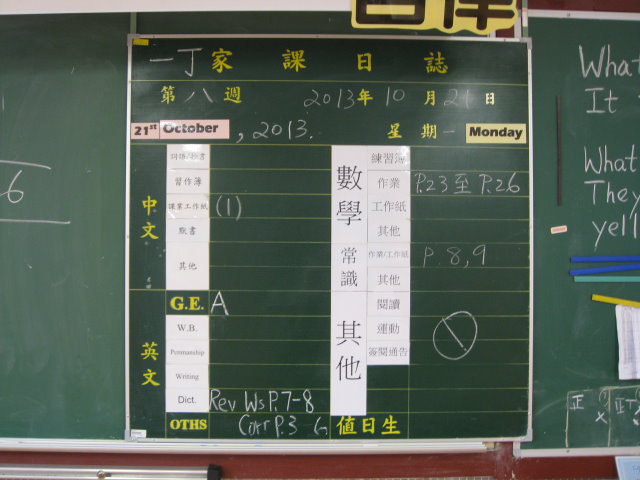 自律
一丁家課日誌
第八週 2013年10月21日
21st October, 2013. 星期一 Monday
中文
詞語/抄書
習作簿
課業工作紙 (1)
默書
其他
英文
G.E. A
W.B.
Penmanship
Writing
Dict. Rev Ws P.7-8
OTHS Corr P.3
數學
練習簿
作業 P.23至P.26
工作紙
其他
常識
作業/工作紙 P.8,9
其他
其他
閱讀
運動
簽閱通告 1
值日生
6
What
It
What
They
yell
正
正